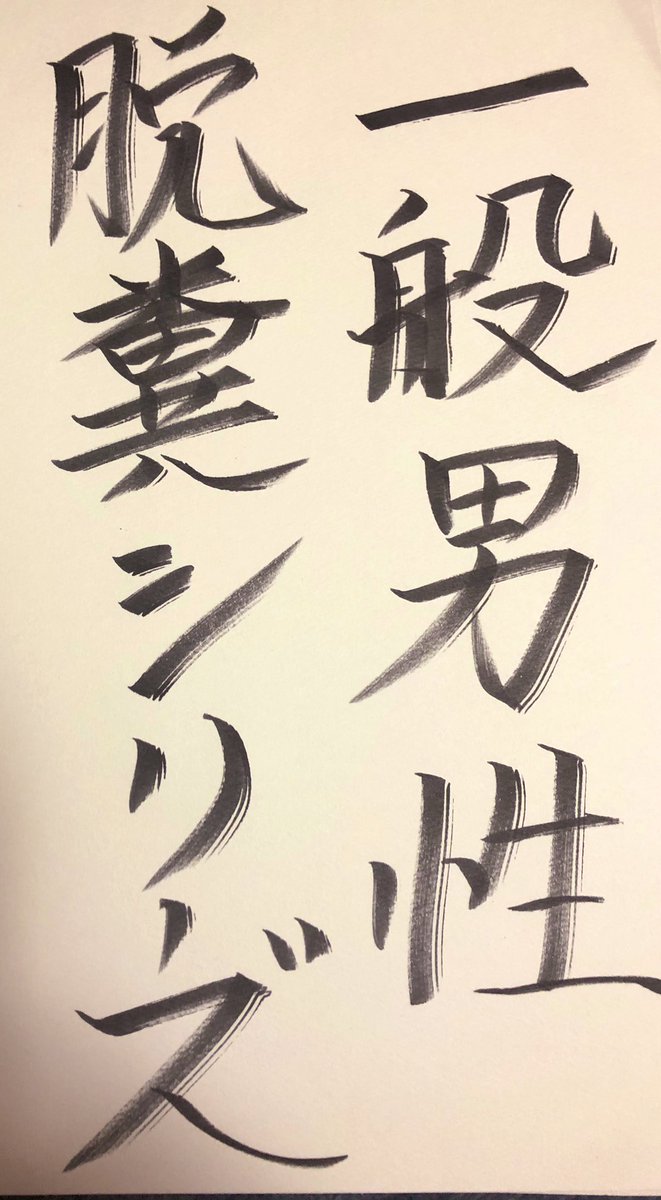 一般男性
脱糞シリーズ